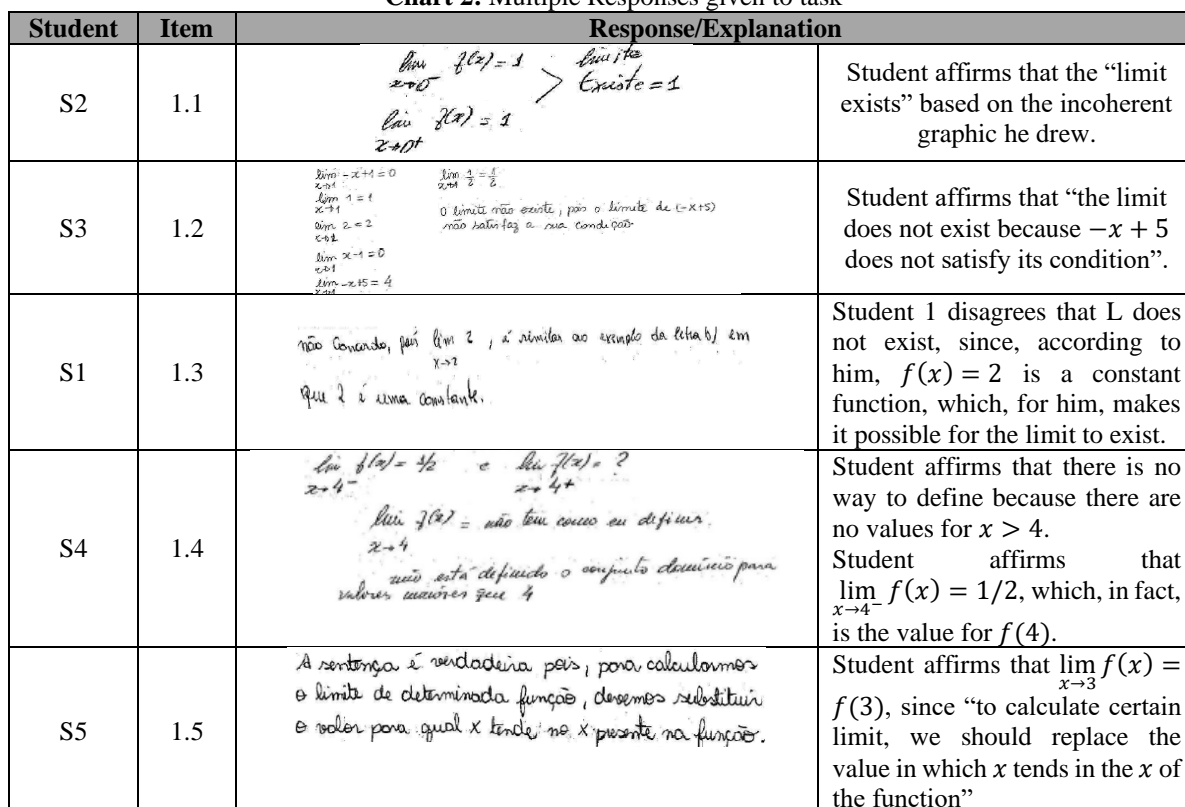 Chart 2. Multiple Responses given to task
Student Item Response/Explanation
S2 1.1
lim f(x) = 1 limite
x→0⁻ > Existe = 1
lim f(x) = 1
x→0⁺
Student affirms that the “limit
exists” based on the incoherent
graphic he drew.
S3 1.2
lim -x+1 = 0 lim 1/2 = 1/2
x→1 x→1
lim 1 = 1
x→1
lim 2 = 2
x→1
lim x-1 = 0
x→1
lim -x+5 = 4
x→1
O limite não existe, pois o limite de (-x+5)
não satisfaz a sua condição.
Student affirms that “the limit
does not exist because −x + 5
does not satisfy its condition”.
S1 1.3
não Concordo, pois lim 2 , é similar ao exemplo da letra b) em
x→2
que 2 é uma constante.
Student 1 disagrees that L does
not exist, since, according to
him, f(x) = 2 is a constant
function, which, for him, makes
it possible for the limit to exist.
S4 1.4
lim f(x) = 1/2 e lim f(x) = ?
x→4⁻ x→4⁺
lim f(x) = não tem como eu definir.
x→4
não está definido o conjunto domínio para
valores maiores que 4
Student affirms that there is no
way to define because there are
no values for x > 4.
Student affirms that
lim f(x) = 1/2, which, in fact,
x→4⁻
is the value for f(4).
S5 1.5
A sentença é verdadeira pois, para calcularmos
o limite de determinada função, devemos substituir
o valor para qual x tende no x presente na função.
Student affirms that lim f(x) =
x→3
f(3), since “to calculate certain
limit, we should replace the
value in which x tends in the x of
the function”